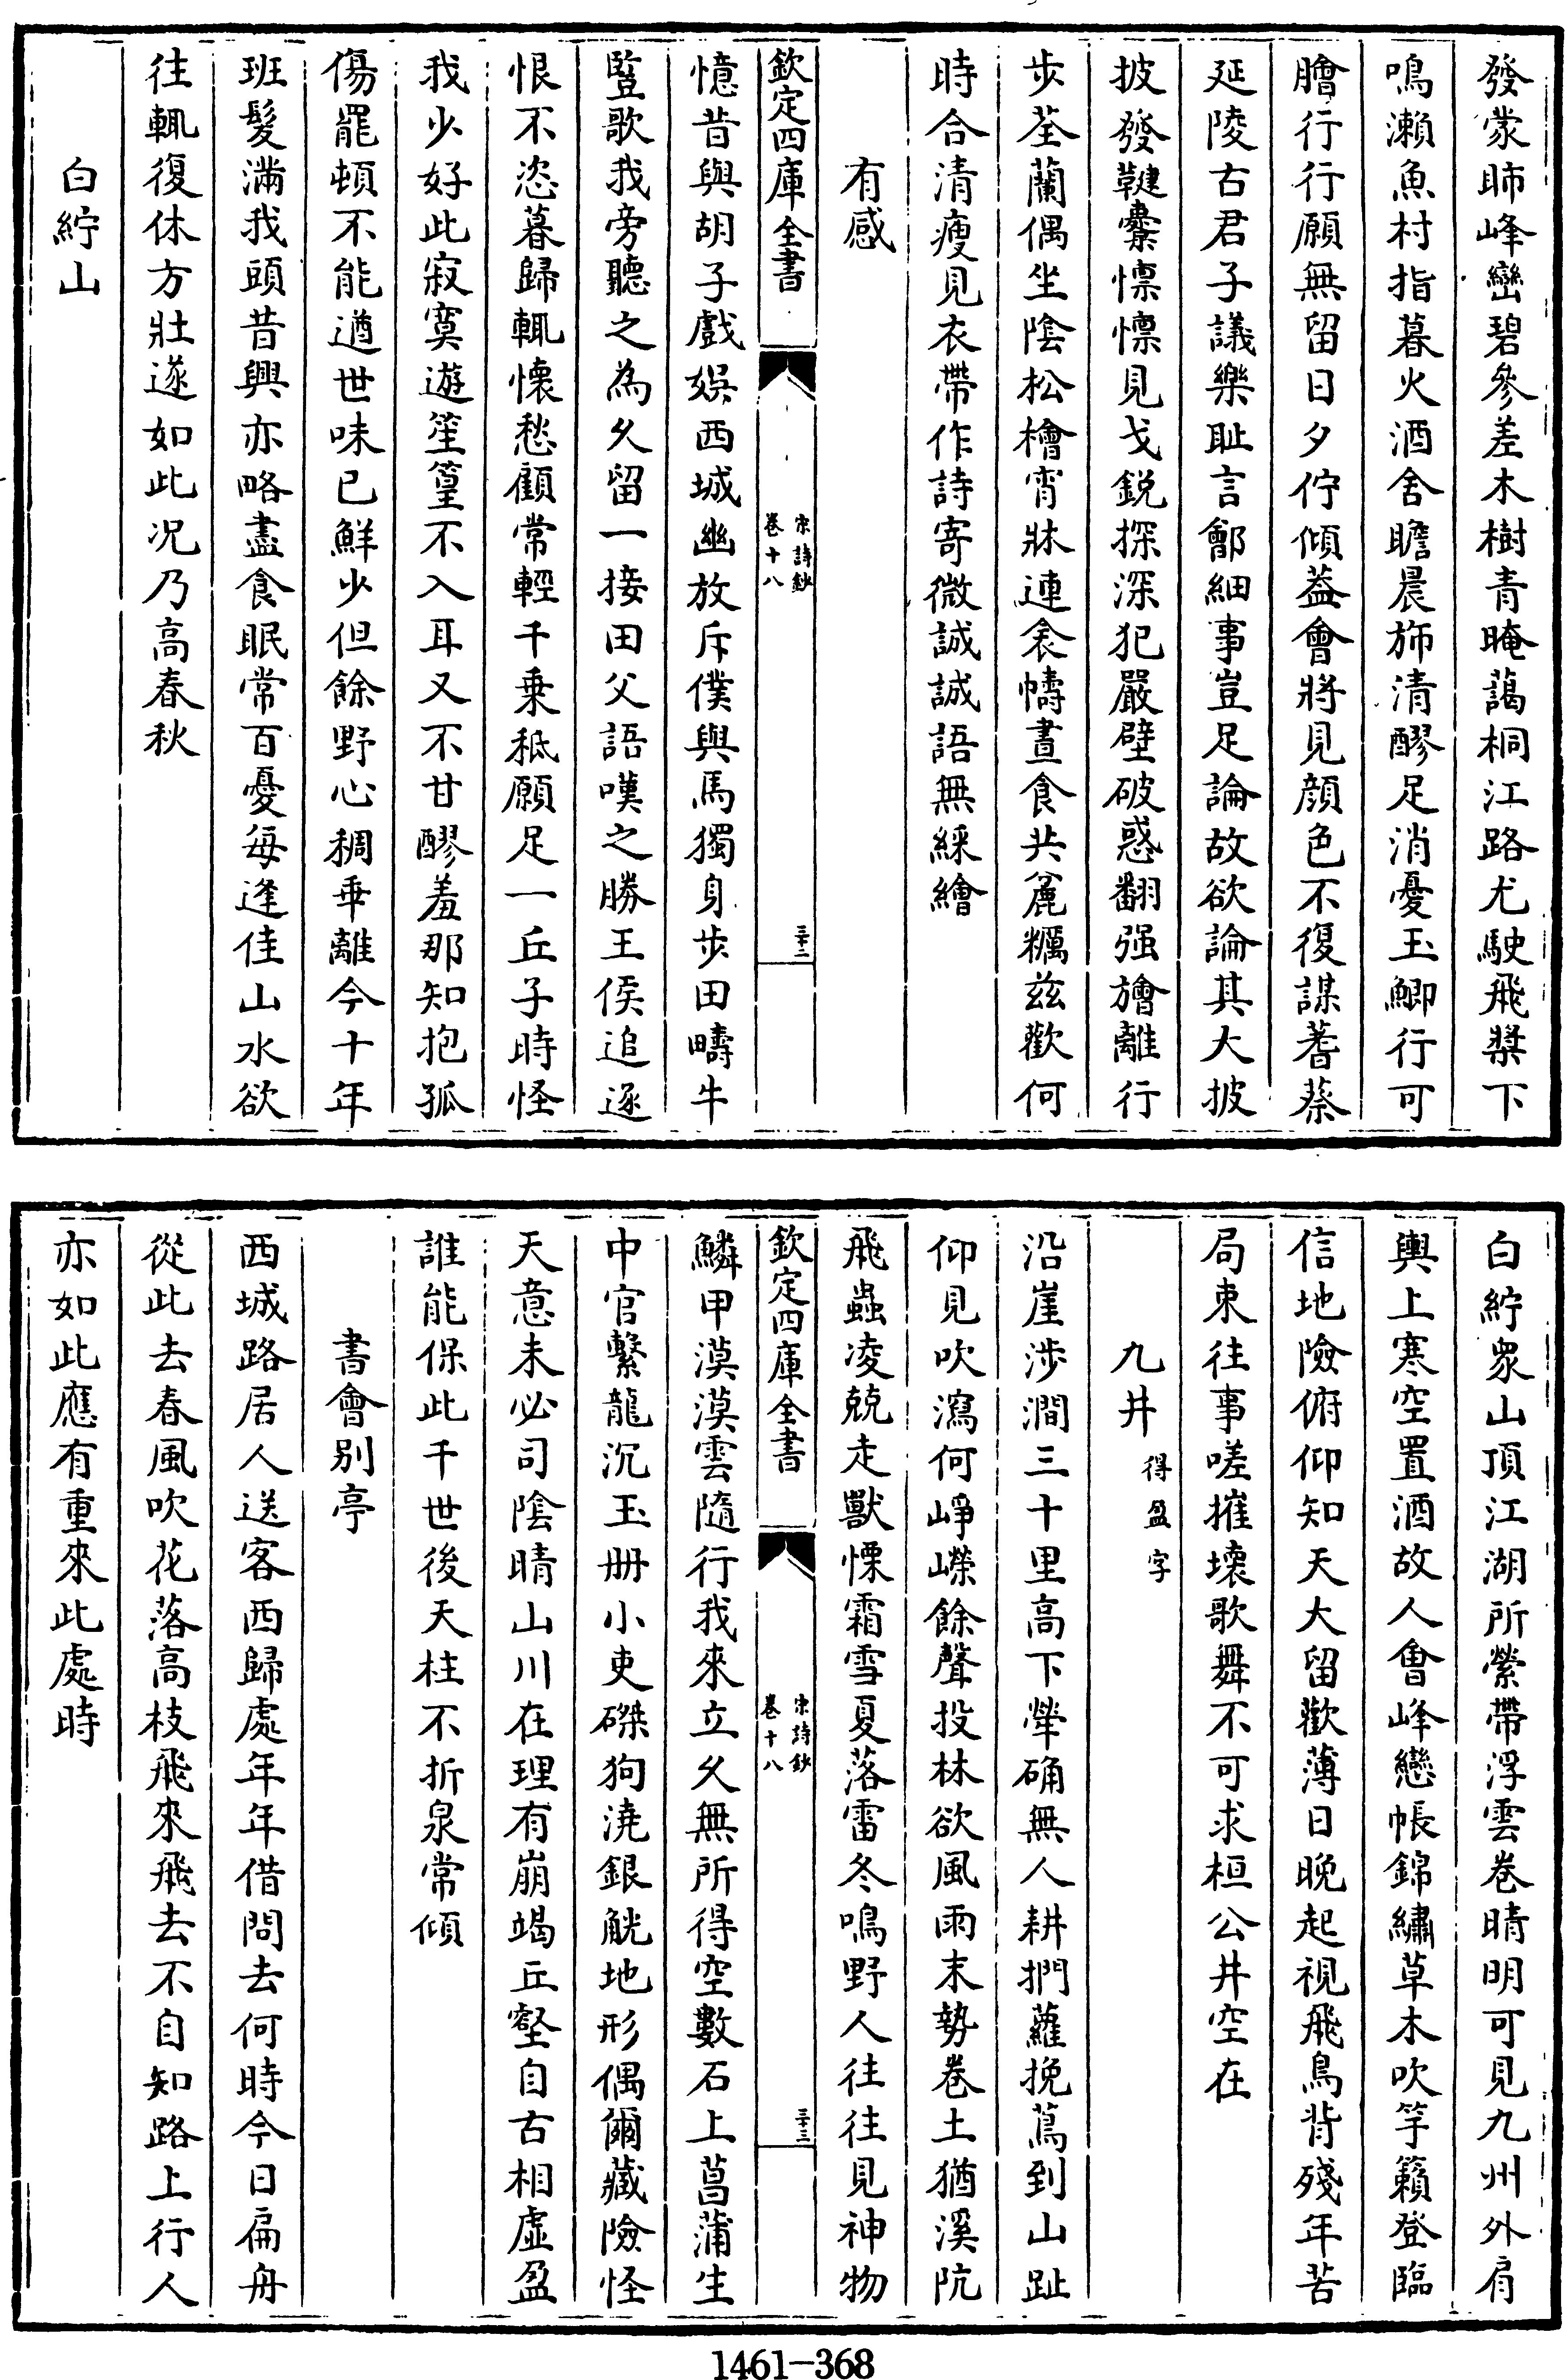 發蒙眎峰巒碧參差木樹青晻藹桐江路尤駛飛槳下
鳴瀨魚村指暮火酒舍瞻晨斾清醪足消憂玉鯽行可
膾行行願無留日夕佇傾葢會將見顔色不復謀蓍蔡
延陵古君子議樂耻言鄶細事豈足論故欲論其大披
披發鞬櫜懍懍見戈鋭探深犯嚴壁破惑翻强旝離行
步荃蘭偶坐陰松檜宵牀連衾幬晝食共麄糲兹歡何
時合清瘦見衣帶作詩寄微誠誠語無綵繪
有感
欽定四庫全書
宋詩鈔
卷十八
三十二
憶昔與胡子戲娛西城幽放斥僕與馬獨身步田疇牛
豎歌我旁聽之為久留一接田父語嘆之勝王侯追逐
恨不恣暮歸輒懷愁顧常輕千乗秪願足一丘子時怪
我少好此寂寞遊笙篁不入耳又不甘醪羞那知抱孤
傷罷頓不能遒世味已鮮少但餘野心稠乖離今十年
班髮滿我頭昔興亦略盡食眠常百憂每逢佳山水欲
往輒復休方壯遂如此况乃高春秋
白紵山
白紵衆山頂江湖所縈帶浮雲卷晴明可見九州外肩
輿上寒空置酒故人會峰巒帳錦繡草木吹竽籟登臨
信地險俯仰知天大留歡薄日晚起視飛鳥背殘年苦
局束往事嗟摧壞歌舞不可求桓公井空在
九井
得盈字
沿崖涉澗三十里高下犖确無人耕捫蘿挽蔦到山趾
仰見吹瀉何崢嶸餘聲投林欲風雨末勢卷土猶溪阬
飛蟲凌兢走獸慄霜雪夏落雷冬鳴野人往往見神物
欽定四庫全書
宋詩鈔
卷十八
三十三
鱗甲漠漠雲隨行我來立久無所得空數石上菖蒲生
中官繫龍沉玉册小吏磔狗澆銀觥地形偶爾藏險怪
天意未必司陰晴山川在理有崩竭丘壑自古相虛盈
誰能保此千世後天柱不折泉常傾
書會别亭
西城路居人送客西歸處年年借問去何時今日扁舟
從此去春風吹花落高枝飛來飛去不自知路上行人
亦如此應有重來此處時
1461-368